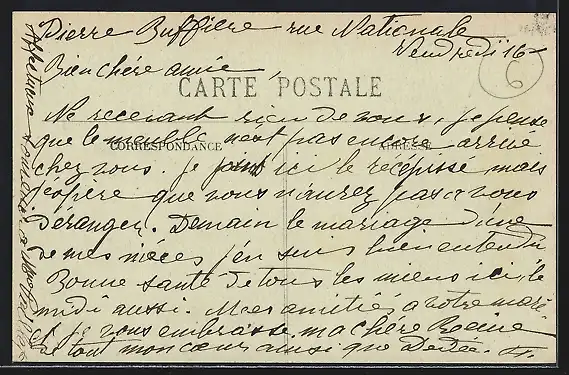 Pierre Buffière rue Nationale
Vendredi 16
6
Bien chère amie
CARTE POSTALE
Ne recevant rien de vous, je pense
que le meuble n'est pas encore arrivé
CORRESPONDANCE
ADRESSE
chez vous. je joins ici le récépissé mais
j'espère que vous n'aurez pas à vous
déranger. Demain le mariage d'une
de mes nièces j'en suis bien entendu
Bonne santé de tous les miens ici, le
midi aussi. Mes amitiés à votre mari
et je vous embrasse ma chère
de tout mon cœur ainsi que Dédée.
Affectueux